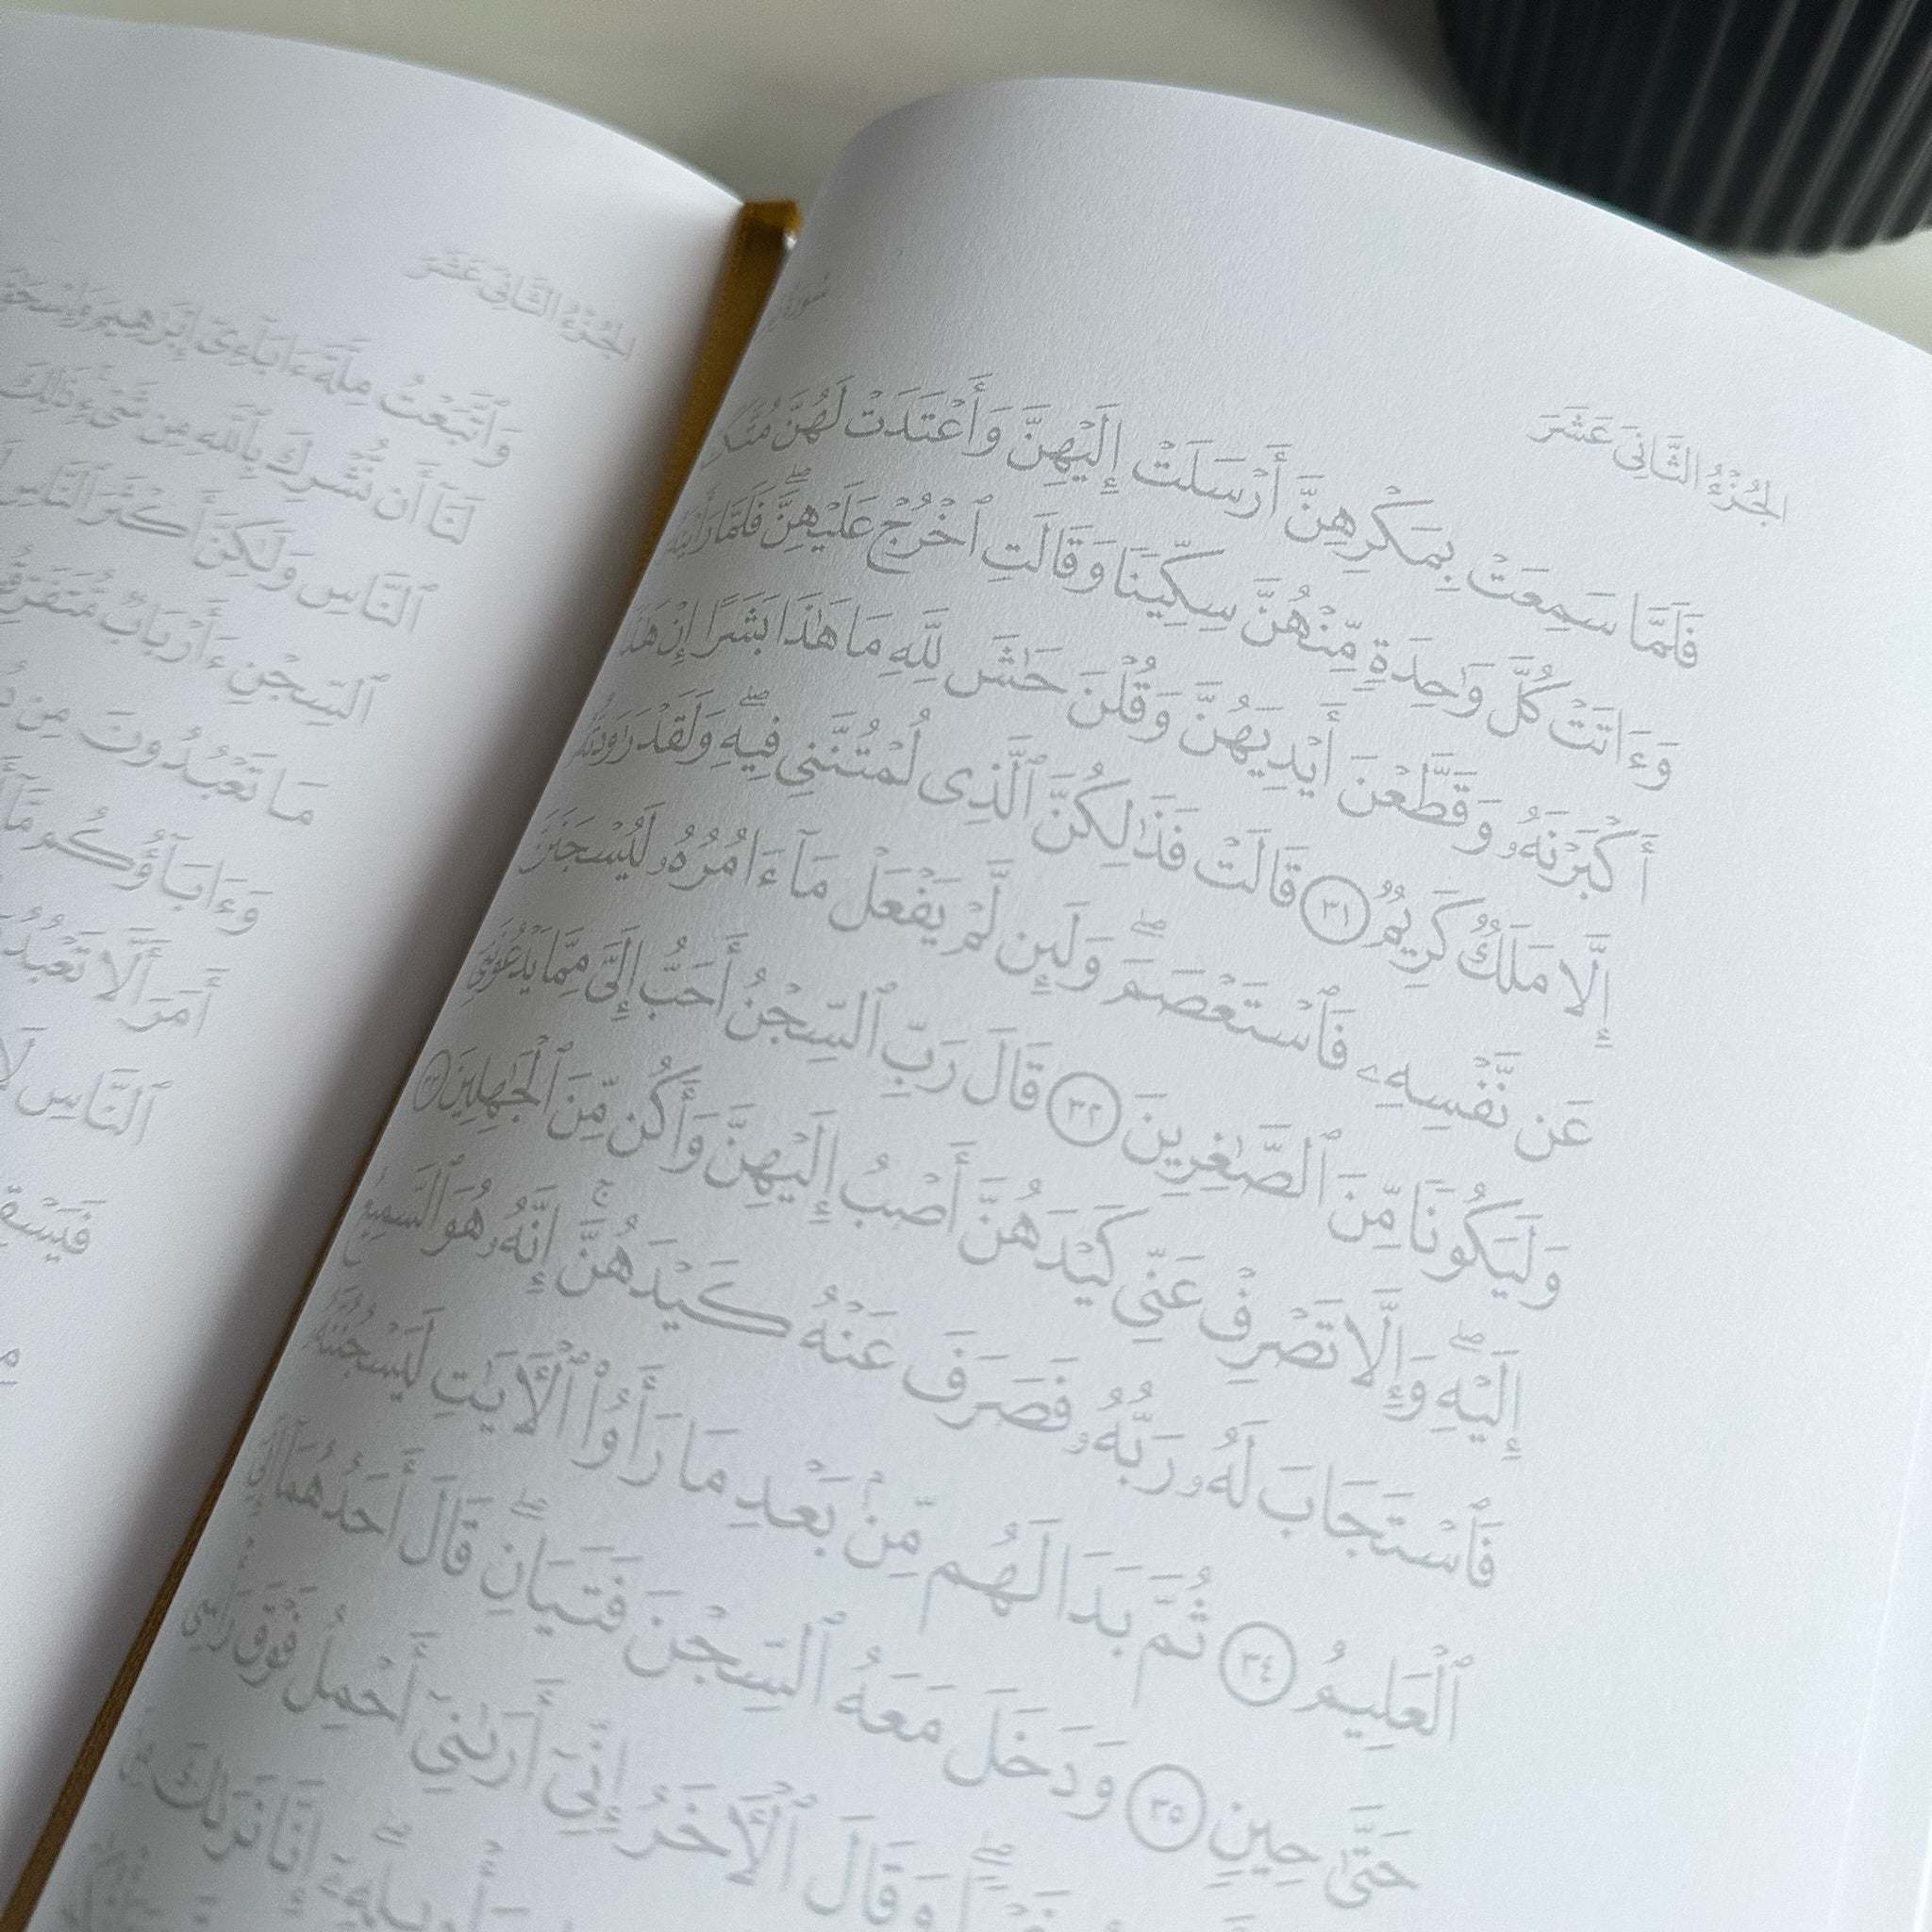 الجُزْءُ الثَّانِيَ عَشَرَ
فَلَمَّا سَمِعَتْ بِمَكْرِهِنَّ أَرْسَلَتْ إِلَيْهِنَّ وَأَعْتَدَتْ لَهُنَّ
وَءَاتَتْ كُلَّ وَٰحِدَةٍ مِّنْهُنَّ سِكِّينًا وَقَالَتِ ٱخْرُجْ عَلَيْهِنَّۖ فَلَمَّا رَأَيْنَهُۥٓ
أَكْبَرْنَهُۥ وَقَطَّعْنَ أَيْدِيَهُنَّ وَقُلْنَ حَٰشَ لِلَّهِ مَا هَٰذَا بَشَرًا إِنْ هَٰذَآ
إِلَّا مَلَكٌ كَرِيمٌ ٣١ قَالَتْ فَذَٰلِكُنَّ ٱلَّذِى لُمْتُنَّنِى فِيهِۖ وَلَقَدْ رَٰوَدتُّهُۥ
عَن نَّفْسِهِۦ فَٱسْتَعْصَمَۖ وَلَئِن لَّمْ يَفْعَلْ مَآ ءَامُرُهُۥ لَيُسْجَنَنَّ
وَلَيَكُونًا مِّنَ ٱلصَّٰغِرِينَ ٣٢ قَالَ رَبِّ ٱلسِّجْنُ أَحَبُّ إِلَىَّ مِمَّا يَدْعُونَنِىٓ
إِلَيْهِۖ وَإِلَّا تَصْرِفْ عَنِّى كَيْدَهُنَّ أَصْبُ إِلَيْهِنَّ وَأَكُن مِّنَ ٱلْجَٰهِلِينَ ٣٣
فَٱسْتَجَابَ لَهُۥ رَبُّهُۥ فَصَرَفَ عَنْهُ كَيْدَهُنَّۚ إِنَّهُۥ هُوَ ٱلسَّمِيعُ
ٱلْعَلِيمُ ٣٤ ثُمَّ بَدَا لَهُم مِّنۢ بَعْدِ مَا رَأَوُا۟ ٱلْأٓيَٰتِ لَيَسْجُنُنَّهُۥ
حَتَّىٰ حِينٍ ٣٥ وَدَخَلَ مَعَهُ ٱلسِّجْنَ فَتَيَانِۖ قَالَ أَحَدُهُمَآ إِنِّىٓ
وَقَالَ ٱلْأٓخَرُ إِنِّىٓ أَرَىٰنِىٓ أَحْمِلُ فَوْقَ رَأْسِى
إِنَّا نَرَىٰكَ
الجُزْءُ الثَّانِيَ عَشَرَ
وَٱتَّبَعْتُ مِلَّةَ ءَابَآءِىٓ إِبْرَٰهِيمَ وَإِسْحَٰقَ
لَنَآ أَن نُّشْرِكَ بِٱللَّهِ مِن شَىْءٍۚ ذَٰلِكَ
ٱلنَّاسِ وَلَٰكِنَّ أَكْثَرَ ٱلنَّاسِ
ٱلسِّجْنِ ءَأَرْبَابٌ
مَا تَعْبُدُونَ مِن
وَءَابَآؤُكُم مَّآ
أَمَرَ أَلَّا تَعْبُدُ
ٱلنَّاسِ لَا